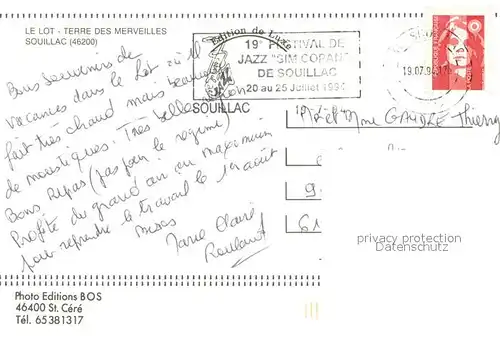 LE LOT - TERRE DES MERVEILLES
SOUILLAC (46200)
Edition de Luxe
19e FESTIVAL DE
JAZZ "SIM COPAN"
DE SOUILLAC
20 au 25 Juillet 1994
SOUILLAC
19.07.94
Bons souvenirs de
vacances dans le Lot où il
fait très chaud mais beaucoup
de moustiques. Très belle région
Bons repas (pas pour le régime)
Profite du grand air au maximum
pour reprendre le travail le 1er août
Bises
Marie Claire
Mr et Mme GAUDRE Thierry
9
61
privacy protection
Datenschutz
Photo Editions BOS
46400 St. Céré
Tél. 65381317